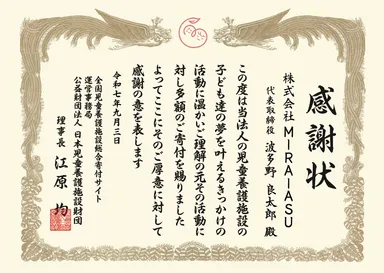 感謝状
株式会社MIRAIASU
代表取締役 波多野 良太郎 殿
この度は当法人の児童養護施設の
子ども達の夢を叶えるきっかけの
活動に温かいご理解の元その活動に
対し多額のご寄付を賜りました
よってここにそのご厚意に対して
感謝の意を表します
令和七年九月三日
全国児童養護施設総合寄付サイト
運営事務局
公益財団法人 日本児童養護施設財団
理事長 江原 均